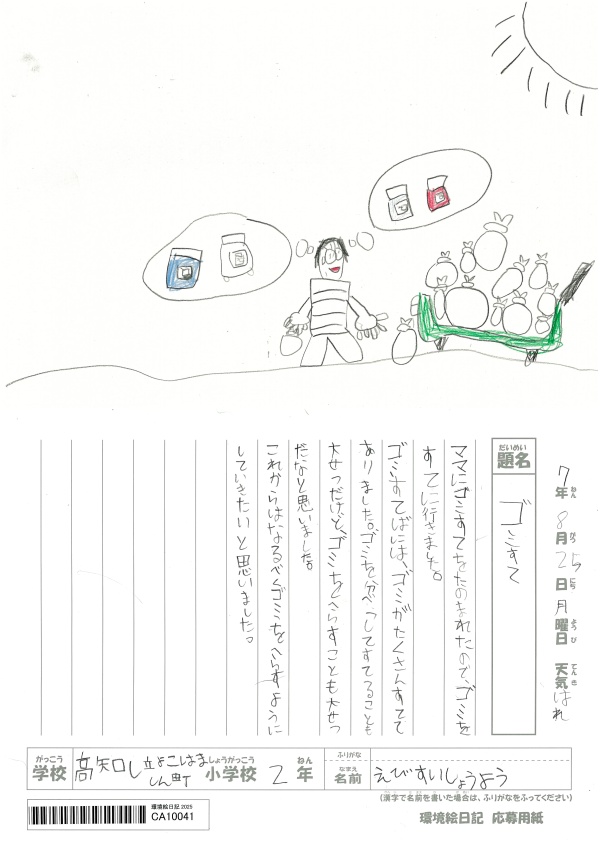 7年 8月 25日 月曜日 天気 はれ
ねん がつ にち ようび てんき
だいめい
題名 ゴミすて
ママにゴミすてをたのまれたので、ゴミを
すてに行きました。
ゴミすてばには、ゴミがたくさんすてて
ありました。ゴミを分べつしてすてることも
大せつだけど、ゴミをへらすことも大せつ
だなと思いました。
これからはなるべくゴミをへらすように
していきたいと思いました。
がっこう しょうがっこう ねん
学校 高知し立よこはましん町 小学校 2年
ふりがな
なまえ
名前 えびすいしょうよう
(漢字で名前を書いた場合は、ふりがなをふってください)
環境絵日記 2025
CA10041
環境絵日記 応募用紙